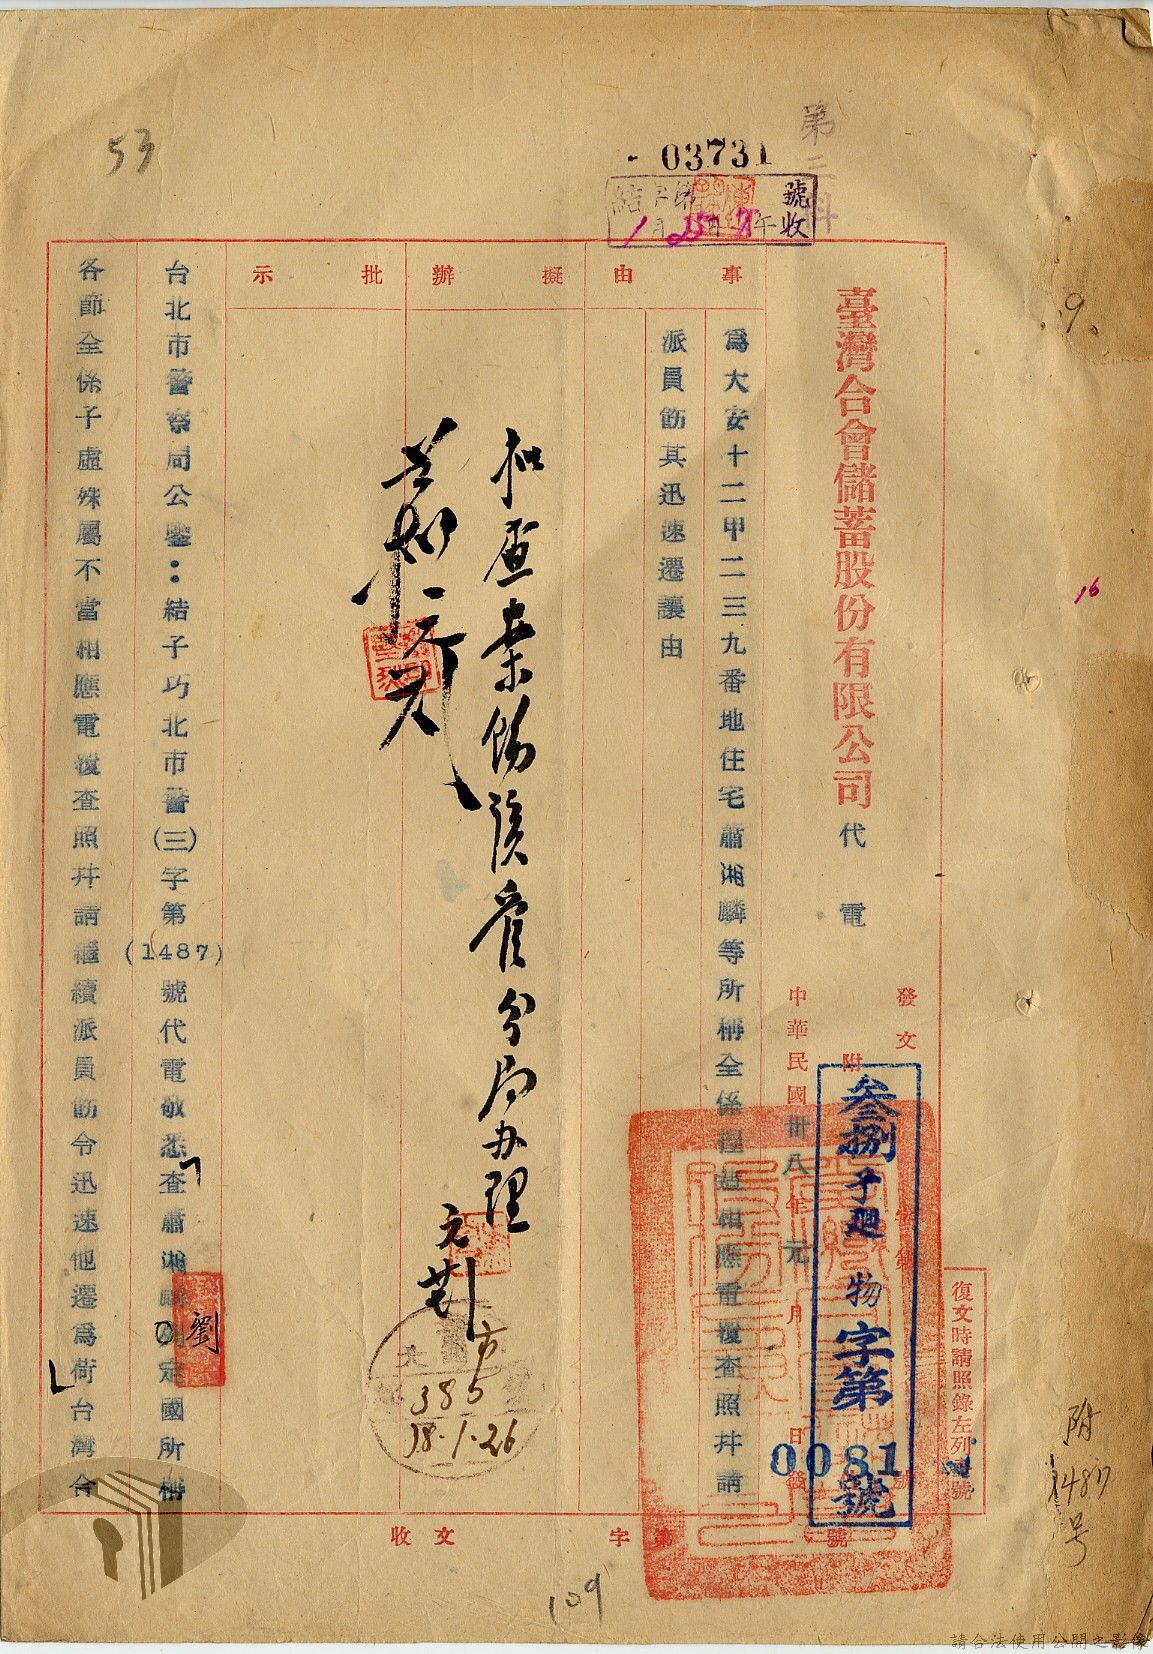 53
03731
第三科
結字第 號
1月25日 午收
臺灣合會儲蓄股份有限公司 代電
發文 字第 號
附
中華民國卅八年元月 日發
叁捌子廻物字第0081號
復文時請照錄左列 號
事由
擬辦
批示
為大安十二甲二三九番地住宅蕭湘麟等所稱全係捏造相應電復查照并請
派員飭其迅速遷讓由
擬查案飭該管分局办理
元
台北市警察局公鑒：結子巧北市警(三)字第(1487)號代電敬悉查蕭湘麟 劉定國所稱
各節全係子虛殊屬不當相應電復查照并請繼續派員飭令迅速他遷為荷台灣合
385
38.1.26
收文 字第 號
9.
16
附
1487
号
109
請合法使用公開之影像